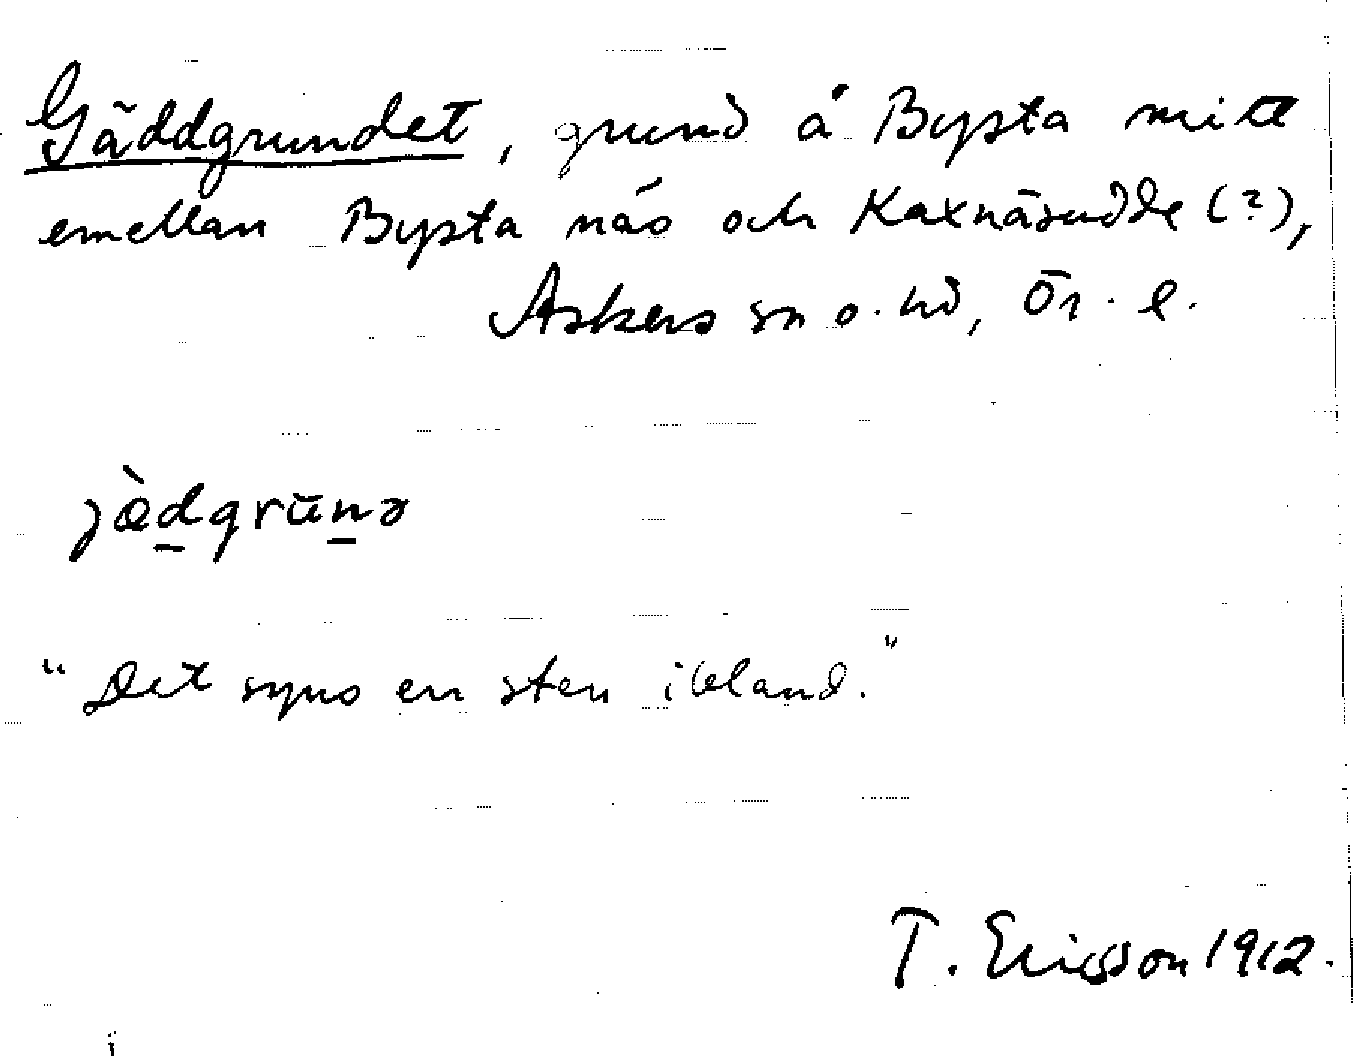 Gäddgrundet, grund å Bysta mitt
emellan Bysta näs och Kaxnäsudde (?),
Askers sn o. hd, Ör. l.
jæ̀dgrūnə
"Det syns en sten ibland."
T. Ericsson 1912.